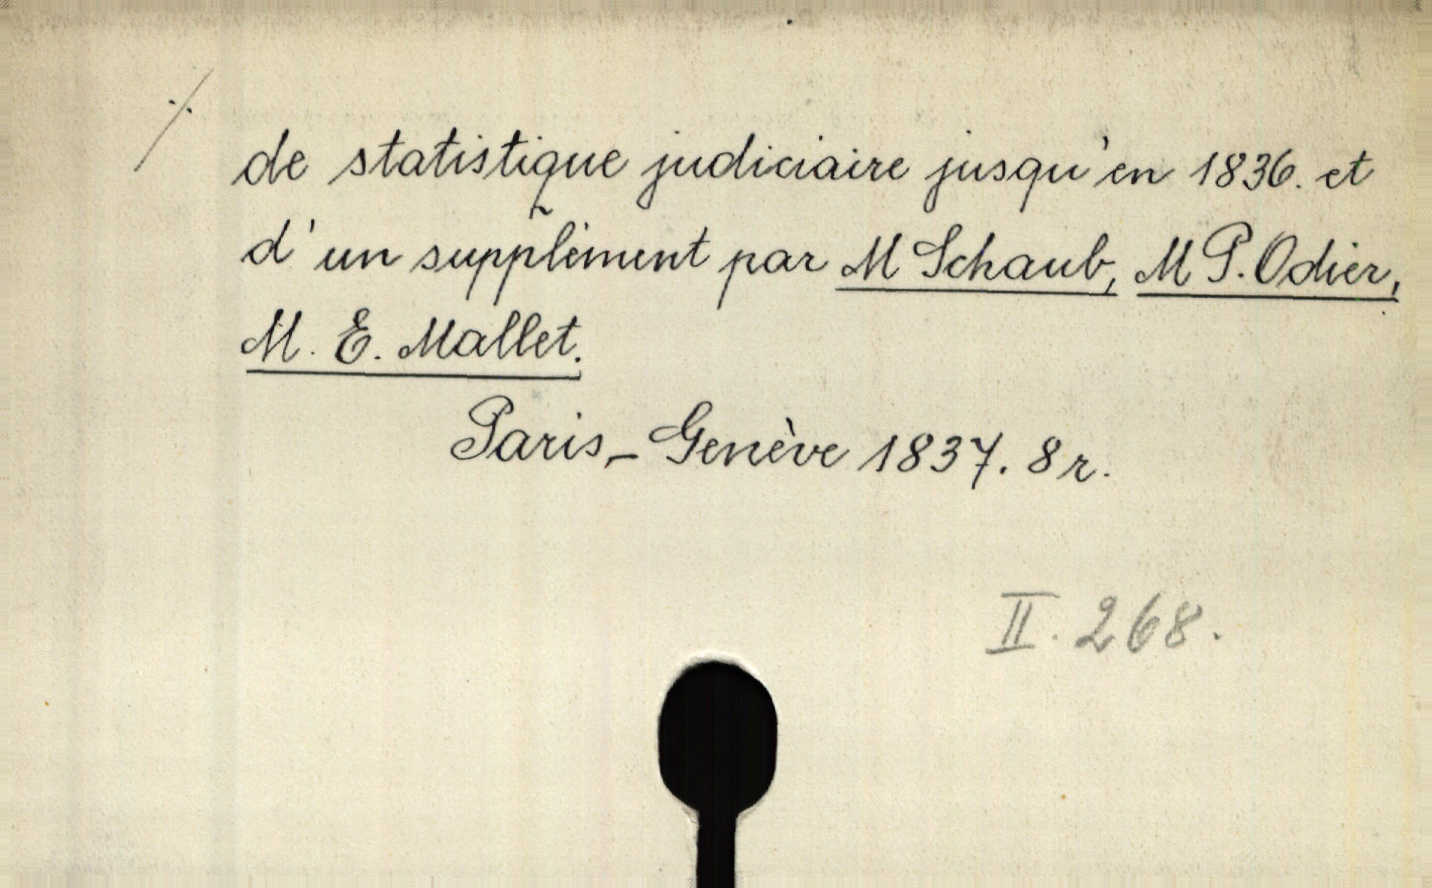 ·/· de statistique judiciaire jusqu'en 1836. et
d'un supplèment par M Schaub, M P. Odier,
M. E. Mallet.
Paris,-Genève 1837. 8r.
II. 268.